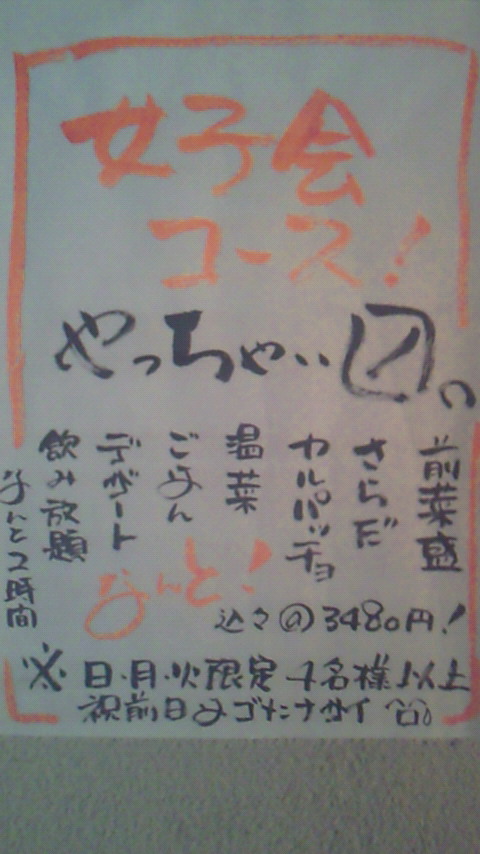 女子会
コース！
やっちゃい〼。
前菜盛
さらだ
カルパッチョ
温菜
ごはん
デザート
飲み放題
なんと2時間
なんと！
込々@3480円！
※日・月・火限定 4名様以上
祝前日はゴメンナサイ